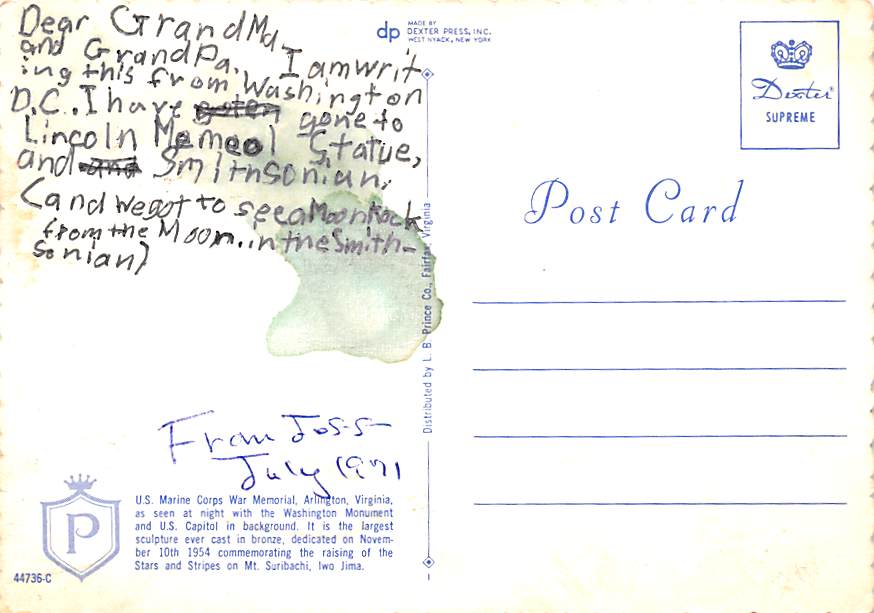 Dear GrandMa,
and GrandPa. I amwrit
ing this from Washington
D.C.. I have gone to
Lincoln Memeol Statue,
and Smithsonian,
(and we got to see a Moon Rock
from the Moon. in the Smith-
sonian)
From Joss
July 1971
U.S. Marine Corps War Memorial, Arlington, Virginia,
as seen at night with the Washington Monument
and U.S. Capitol in background. It is the largest
sculpture ever cast in bronze, dedicated on Novem-
ber 10th 1954 commemorating the raising of the
Stars and Stripes on Mt. Suribachi, Iwo Jima.
P
44736-C
dp
MADE BY
DEXTER PRESS, INC.
WEST NYACK, NEW YORK
Distributed by L. B. Prince Co., Fairfax, Virginia
Dexter®
SUPREME
Post Card